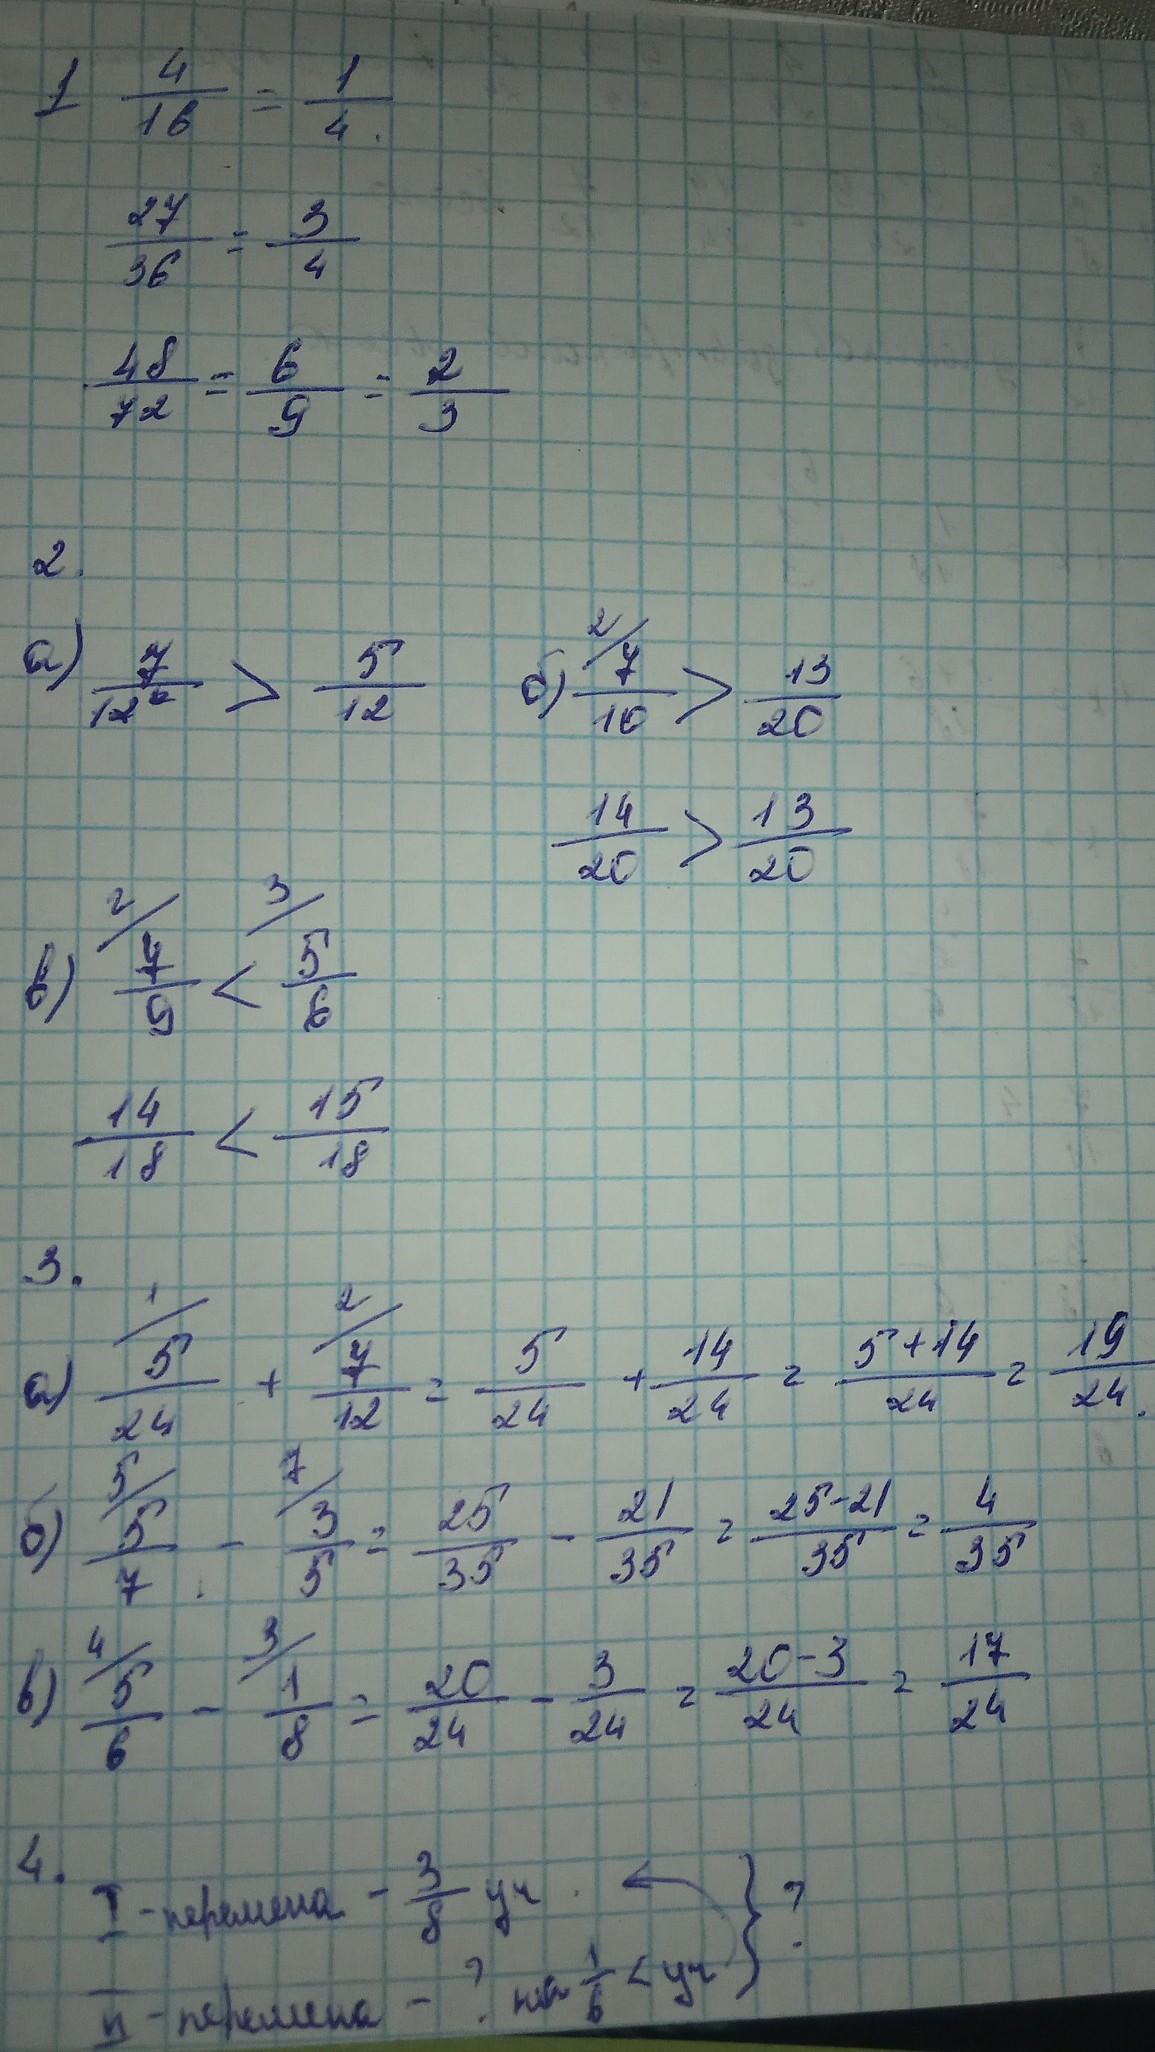 1 4/16 = 1/4.
27/36 = 3/4
48/72 = 6/9 = 2/3
2.
а) 7/12 > 5/12 б) 2/ 7/10 > 13/20
14/20 > 13/20
в) 2/ 7/9 < 3/ 5/6
14/18 < 15/18
3.
а) 1/ 5/24 + 2/ 7/12 = 5/24 + 14/24 = 5+14/24 = 19/24.
б) 5/ 5/7 - 7/ 3/5 = 25/35 - 21/35 = 25-21/35 = 4/35
в) 4/ 5/6 - 3/ 1/8 = 20/24 - 3/24 = 20-3/24 = 17/24
4. I - перемена - 3/8 уч } ?
II - перемена - ? на 1/6 < уч